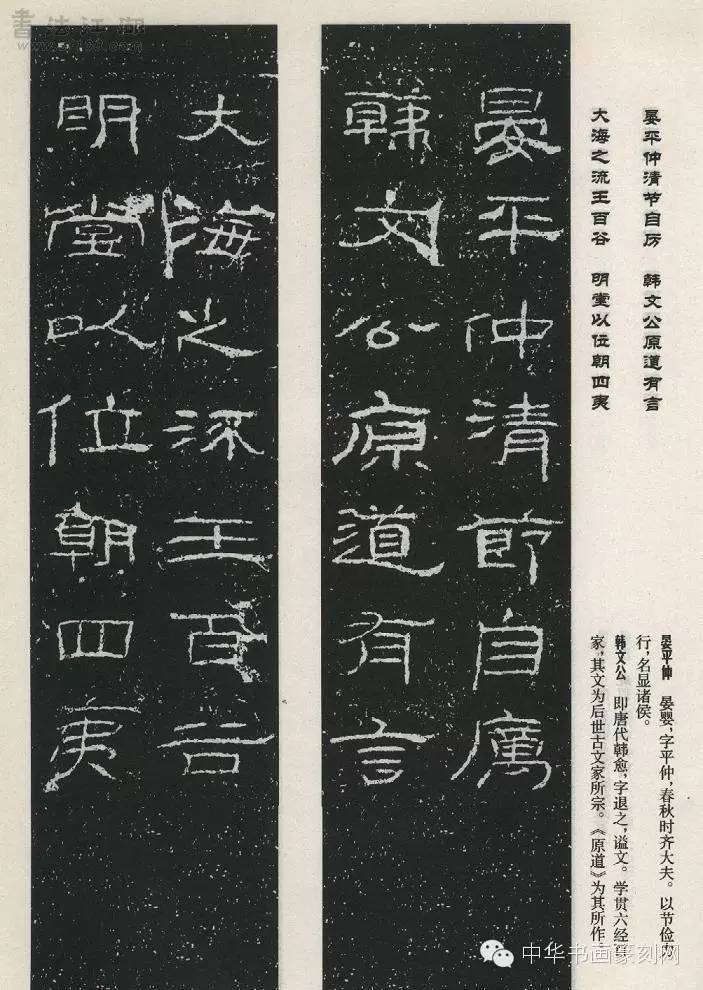 書法江湖
晏平仲清节自厉　韩文公原道有言
大海之流王百谷　明堂以位朝四夷
晏平仲清節自厲
韓文公原道有言
大海之流王百谷
明堂以位朝四夷
晏平仲　晏婴，字平仲，春秋时齐大夫。以节俭力
行，名显诸侯。
韩文公　即唐代韩愈，字退之，谥文。学贯六经百
家，其文为后世古文家所宗。《原道》为其所作
中华书画篆刻网